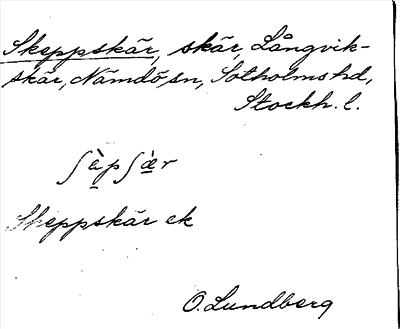 Skeppskär, skär, Långvik-
skär, Nämdö sn, Sotholms hd,
Stockh. l.
ʃὲpʃæ̀r
Skeppskär ek
O. Lundberg